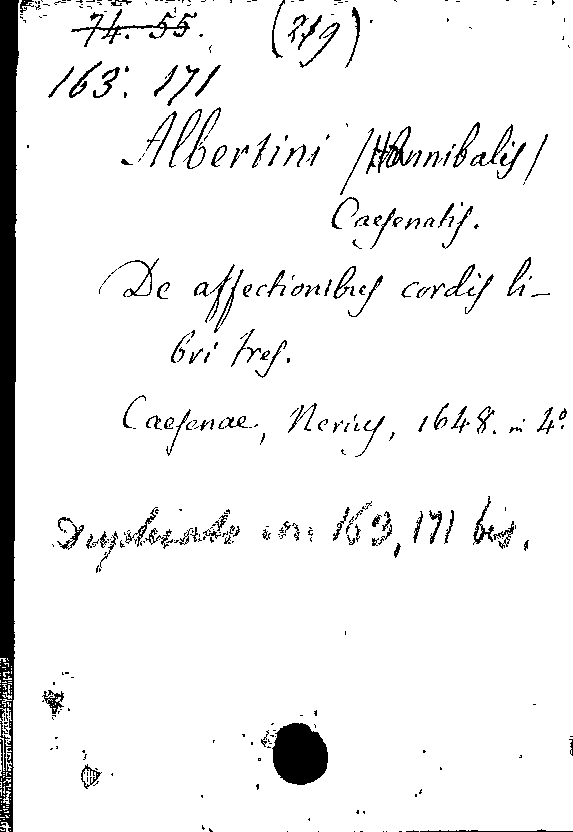 74. 55. (219)
163. 171
Albertini /Hannibalis/
Caesenatis.
De affectionibus cordis li-
bri tres.
Caesenae, Nerius, 1648. in 4°.
Duplicado con 163, 171 bis.